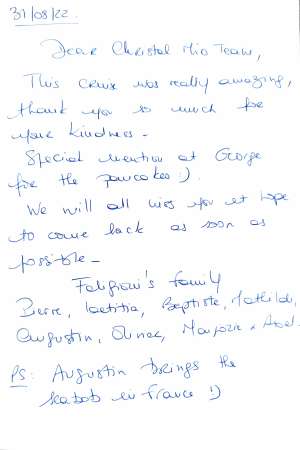 31/08/22.
Dear Christal Mio Team,
This cruise was really amazing,
thank you so much for
your kindness -
Special mention at George
for the pancakes :)
We will all miss you et hope
to come back as soon as
possible -
family
Pierre, Laetitia, Baptiste, Mathilde,
Augustin, Marjorie, Axel.
PS: Augustin brings the
kabob in France :)